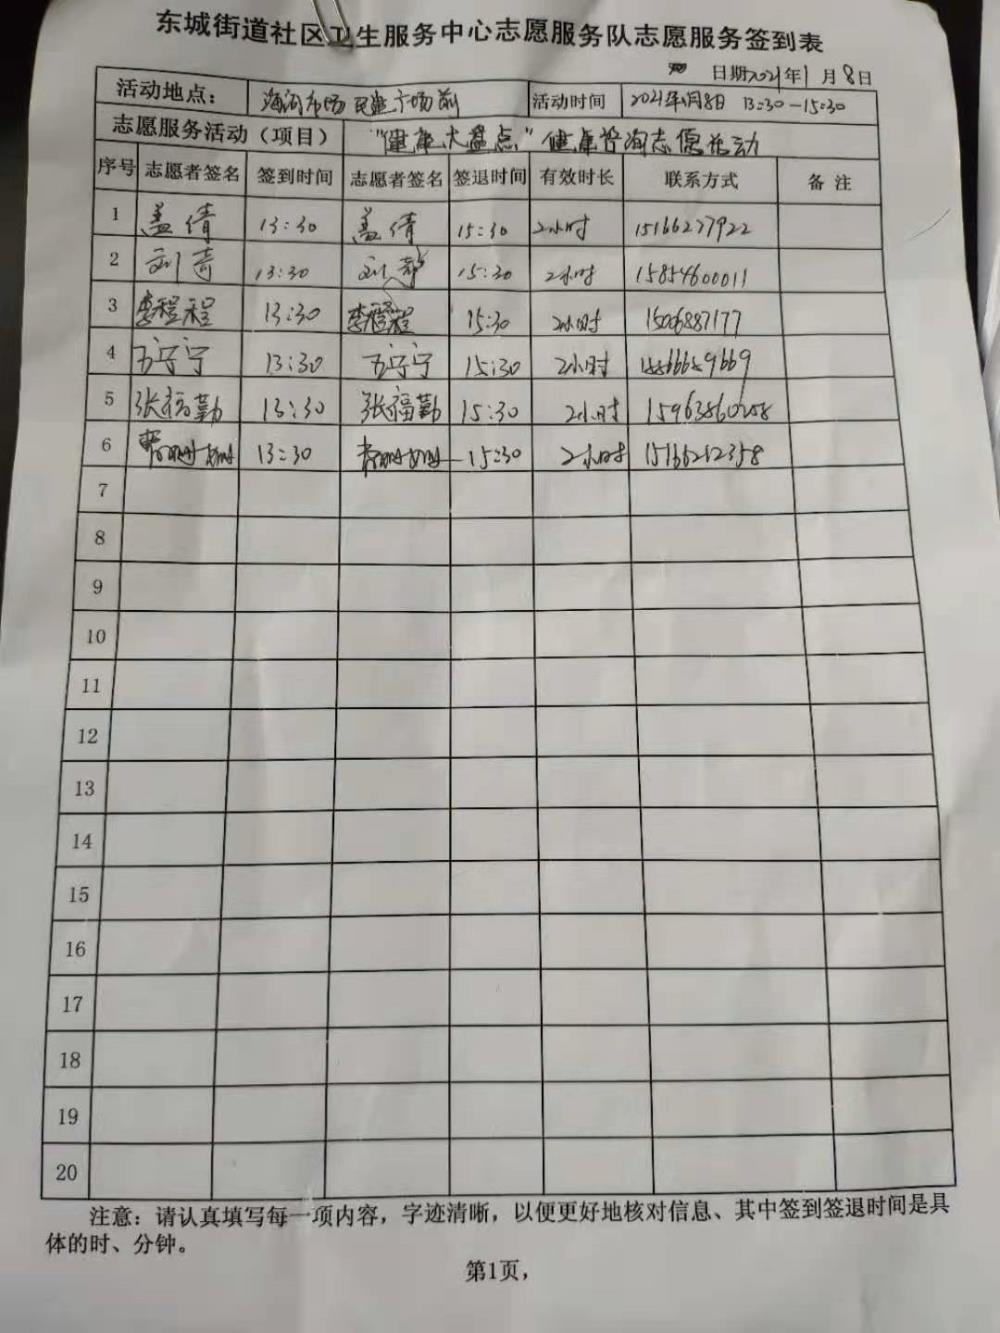 东城街道社区卫生服务中心志愿服务队志愿服务签到表
日期2021年1月8日
活动地点： 海河市场 广场前 活动时间 2021年1月8日 13:30-15:30
志愿服务活动（项目） “健康大盘点”健康咨询志愿活动
序号 志愿者签名 签到时间 志愿者签名 签退时间 有效时长 联系方式 备注
1 盖倩 13:30 盖倩 15:30 2小时 15166277922
2 刘奇 13:30 刘 15:30 2小时 15854600011
3 李程程 13:30 李程程 15:30 2小时 15006887177
4 守宁 13:30 守宁 15:30 2小时
5 张福勤 13:30 张福勤 15:30 2小时
6 13:30 15:30 2小时 15166212358
7
8
9
10
11
12
13
14
15
16
17
18
19
20
注意：请认真填写每一项内容，字迹清晰，以便更好地核对信息、其中签到签退时间是具
体的时、分钟。
第1页，